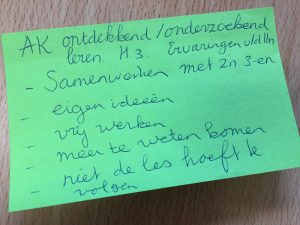 AK ontdekkend/onderzoekend
leren. H3. Ervaringen v/d lln
- Samenwerken met zn 3-en
- eigen ideeën
- vrij werken
- meer te weten komen
- niet de les hoeft te
volgen